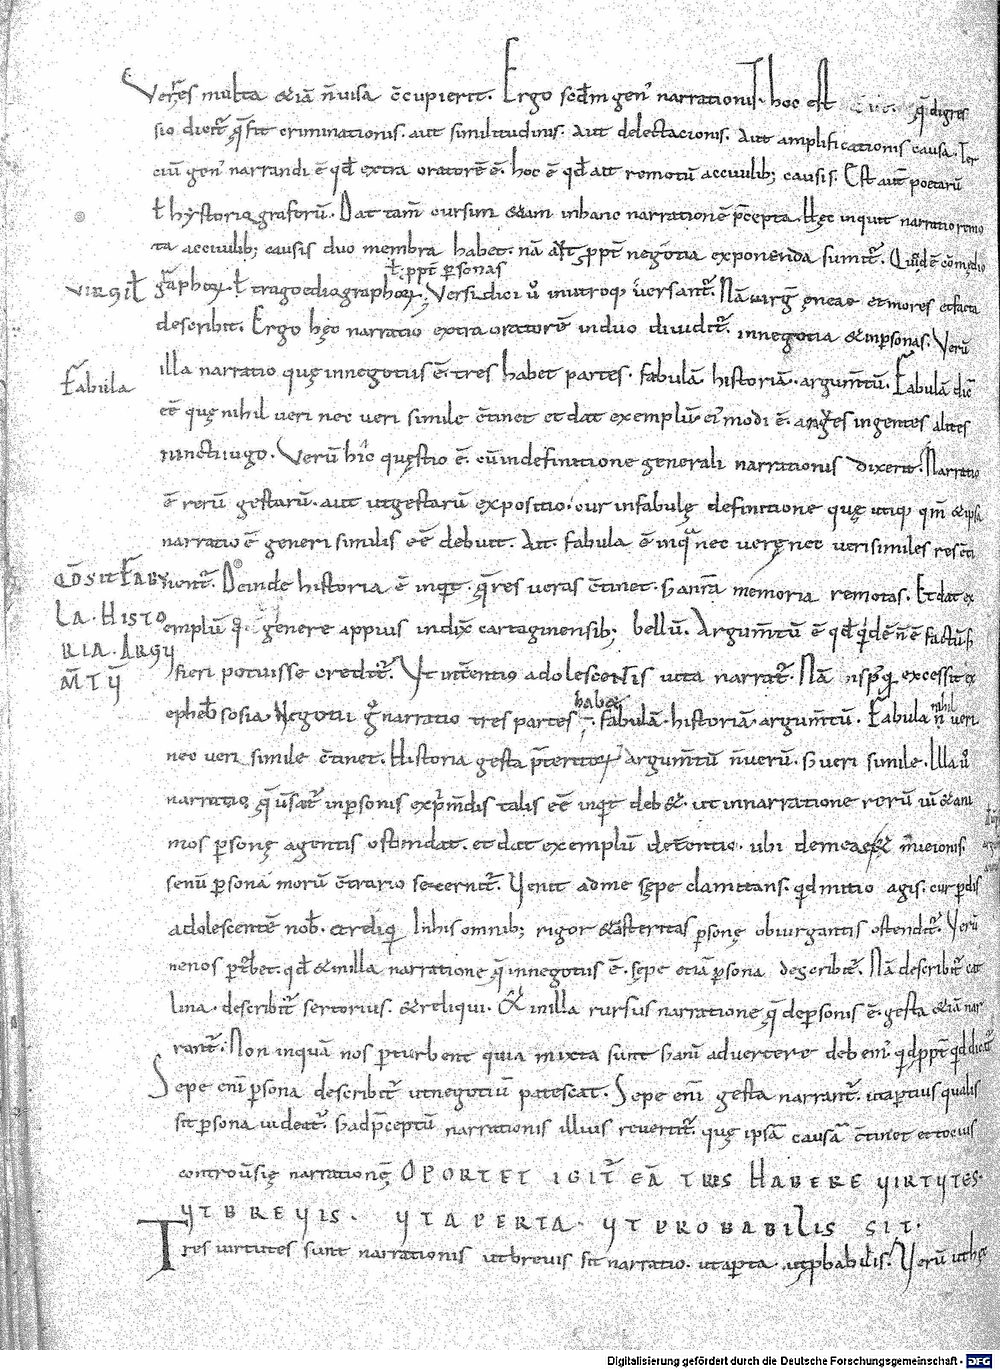 Verres multa & iā n̄ uisa c̄cupierit. Ergo scd̄m gen' narrationis. hoc est q̄ digres
sio dicit̄ q̄ fit criminationis. aut similitudinis. Aut delectacionis. Aut amplificationis causa. Ter
ciū gen' narrandi ē qd̄ extra oratorē ē. hoc ē qd̄ att remotū a ciuilib; causis. Est aut̄ poetarū
ł hystoriẹgraforū. Dat tam̄ cursim &iam in hanc narrationē p̄cepta. Hęc inquit narratio remo
ta a ciuilib; causis duo membra habet. nā aut ppt̄ negotia exponenda sumit̄. Quidē comędio
ł ppt̄ personas
VIRGIŁ
graphoꝝ ł tragoediographoꝝ; Versi dici u° in utroq; uersant̄. Nā uirḡ eneae et mores et facta
describit. Ergo hęc narratio extra oratorē in duo diuidit̄. in negotia & in personas. Verū
Fabula
illa narratio quę in negotiis ē. tres habet partes. fabulā historiā. argum̄tū. Fabulā dic̄
eē quę nihil ueri nec ueri simile c̄tinet et dat exemplū. ei' modi ē. angues ingentes alites
iuncti iugo. Verū hic quęstio ē. cū in definitione generali narrationis dixerit. Narratio
ē rerū gestarū. aut ut gestarū expositio. cur in fabulę definitione quę utiq; qm̄ & ipsa
narratio ē generi similis eē debuit. Ait. fabula ē inq̄ nec uerę nec ueri similes res c̄ti
QD̄ SIT FABV
LA. HISTO
RIA. ARGU
M̄TŪ
nent̄. Deinde historia ē inqt̄. q̄ res ueras c̄tinet. s; a nr̄a memoria remotas. Et dat ex
emplū genere appius indix̄ cartaginensib; bellū. Argum̄tū ē qd̄ qidē n̄ ē factū s;
fieri potuisse credit̄. Vt in terentio adolescentis uita narrat̄. Nā is pq̄ excessit ex
habet
epheb̄ sosia. Negotii g° narratio tres partes fabulā. historiā. argum̄tū. Fabula nihil n̄ ueri
nec ueri simile c̄tinet. Historia gesta p̄teritoꝝ argum̄tū n̄ uerū. s; ueri simile. Illa u°
narratio, q̄ uersat̄ in personis exprim̄dis talis eē inqt̄ deb&. ut in narratione rerū ui & ani
mos personę agentis ostendat. et dat exemplū de terentio. ubi demeae & micionis
senū persona morū c̄trario secernit̄. Venit ad me sępe clamitans. qid mitio agis. cur perdis
adolescentē nob̄. et reliq̄ In his omnib; rigor & asteritas personę obiurgantis ostendit̄. Verū
ne nos pt̄bet. qd̄ & in illa narratione q̄ in negotiis ē. sępe etiā persona describit̄. Nā describit̄ cat
lina. describit̄ sertorius. & reliqui. Et in illa rursus narratione q̄ de personis ē. gesta & iā nar
rant̄. Non inquā nos perturbent quia mixta sunt s; animaduertere debem'. qid ppt̄ qid dicat̄
Sepe eni persona describit̄ ut negotiū patescat. Sepe eni gesta narrant̄. ut apertius qualis
sit persona uideat̄. s; ad p̄ceptū narrationis illius reuertit̄. quę ipsā causā c̄tinet et tocius
controuersię narrationē OPORTET IGIT̄ EĀ TRES HABERE VIRTVTES.
VT BREVIS. VT APERTA. VT PROBABILIS SIT.
Tres uirtutes sunt narrationis ut breuis sit narratio. ut aperta. ut pbabilis. Verū ut hęc
Digitalisierung gefördert durch die Deutsche Forschungsgemeinschaft - DFG